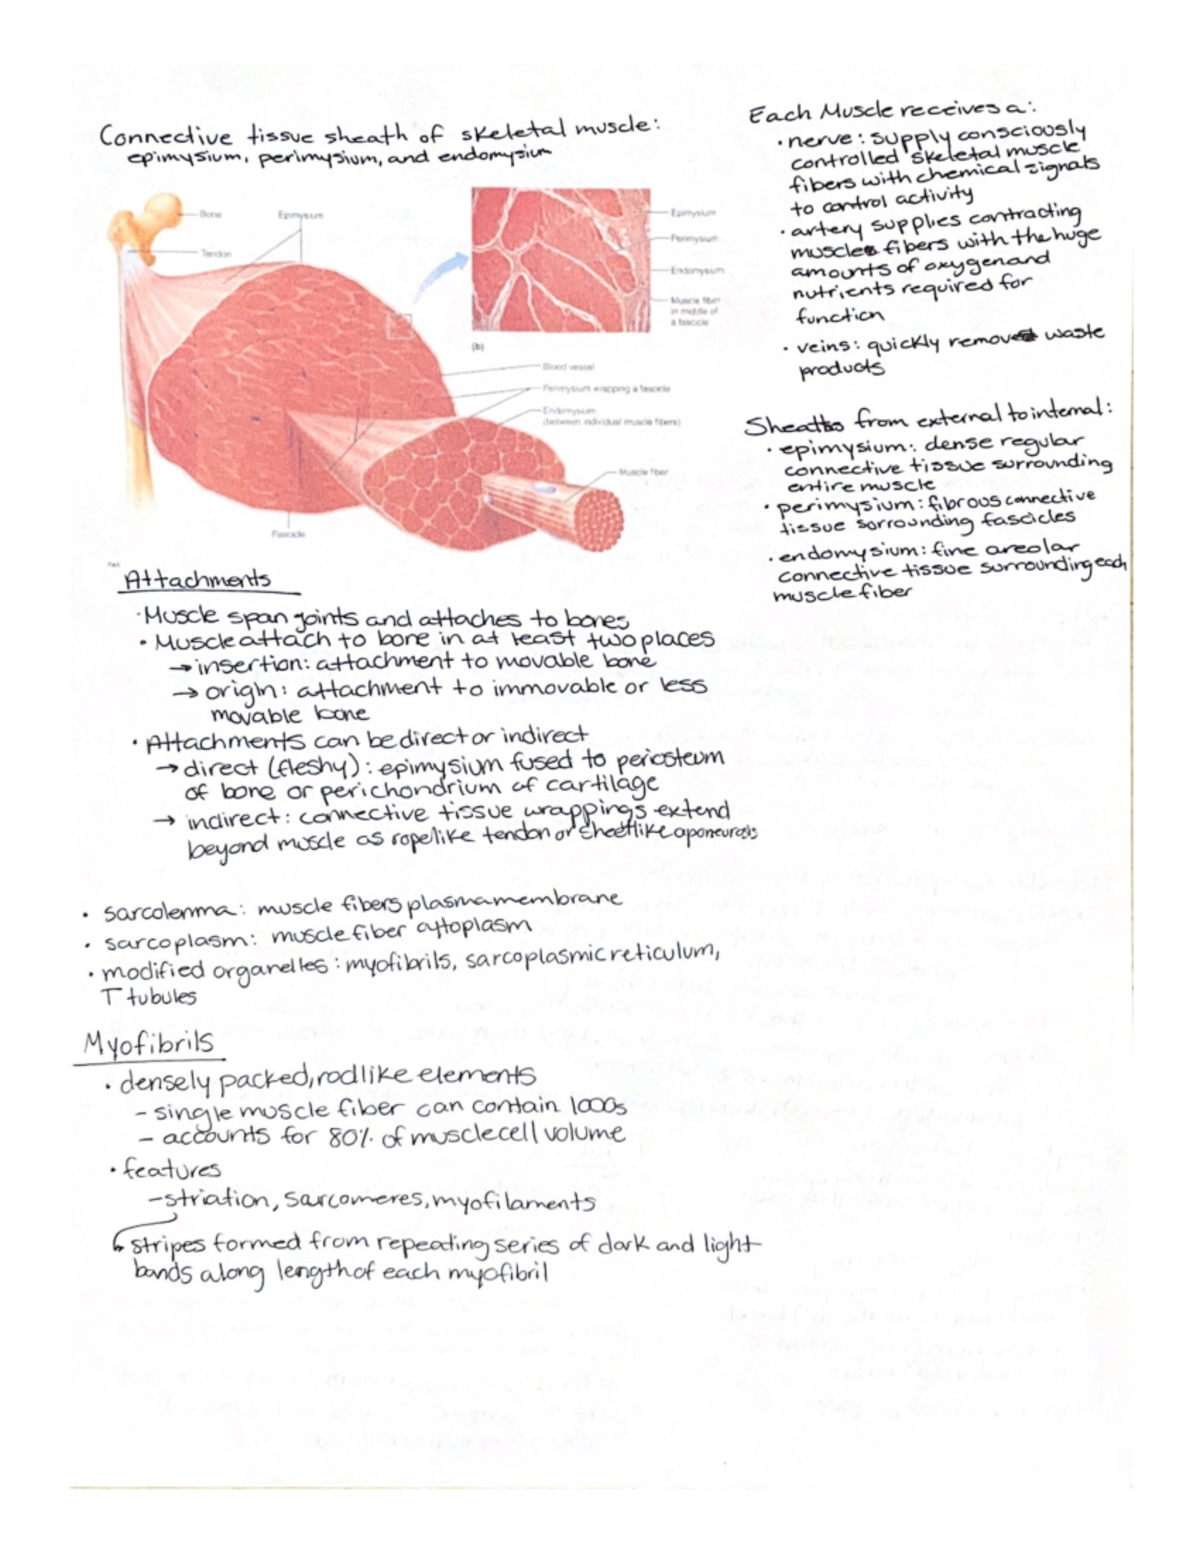 Connective tissue sheath of skeletal muscle:
epimysium, perimysium, and endomysium
Bone
Epimysium
Tendon
Epimysium
Perimysium
Endomysium
Muscle fiber
in middle of
a fascicle
(b)
Blood vessel
Perimysium wrapping a fascicle
Endomysium
(between individual muscle fibers)
Muscle fiber
Fascicle
Each Muscle receives a:
• nerve: supply consciously
controlled skeletal muscle
fibers with chemical signals
to control activity
• artery supplies contracting
muscle fibers with the huge
amounts of oxygen and
nutrients required for
function
• veins: quickly remove waste
products
Sheaths from external to internal:
• epimysium: dense regular
connective tissue surrounding
entire muscle
• perimysium: fibrous connective
tissue sorrounding fascicles
• endomysium: fine areolar
connective tissue surrounding each
muscle fiber
Attachments
• Muscle span joints and attaches to bones
• Muscle attach to bone in at least two places
→ insertion: attachment to movable bone
→ origin: attachment to immovable or less
movable bone
• Attachments can be direct or indirect
→ direct (fleshy): epimysium fused to periosteum
of bone or perichondrium of cartilage
→ indirect: connective tissue wrappings extend
beyond muscle as ropelike tendon or sheetlike aponeurosis
• sarcolemma: muscle fibers plasma membrane
• sarcoplasm: muscle fiber cytoplasm
• modified organelles: myofibrils, sarcoplasmic reticulum,
T tubules
Myofibrils
• densely packed, rodlike elements
- single muscle fiber can contain 1000s
- accounts for 80% of muscle cell volume
• features
- striation, sarcomeres, myofilaments
↳ stripes formed from repeating series of dark and light
bands along length of each myofibril